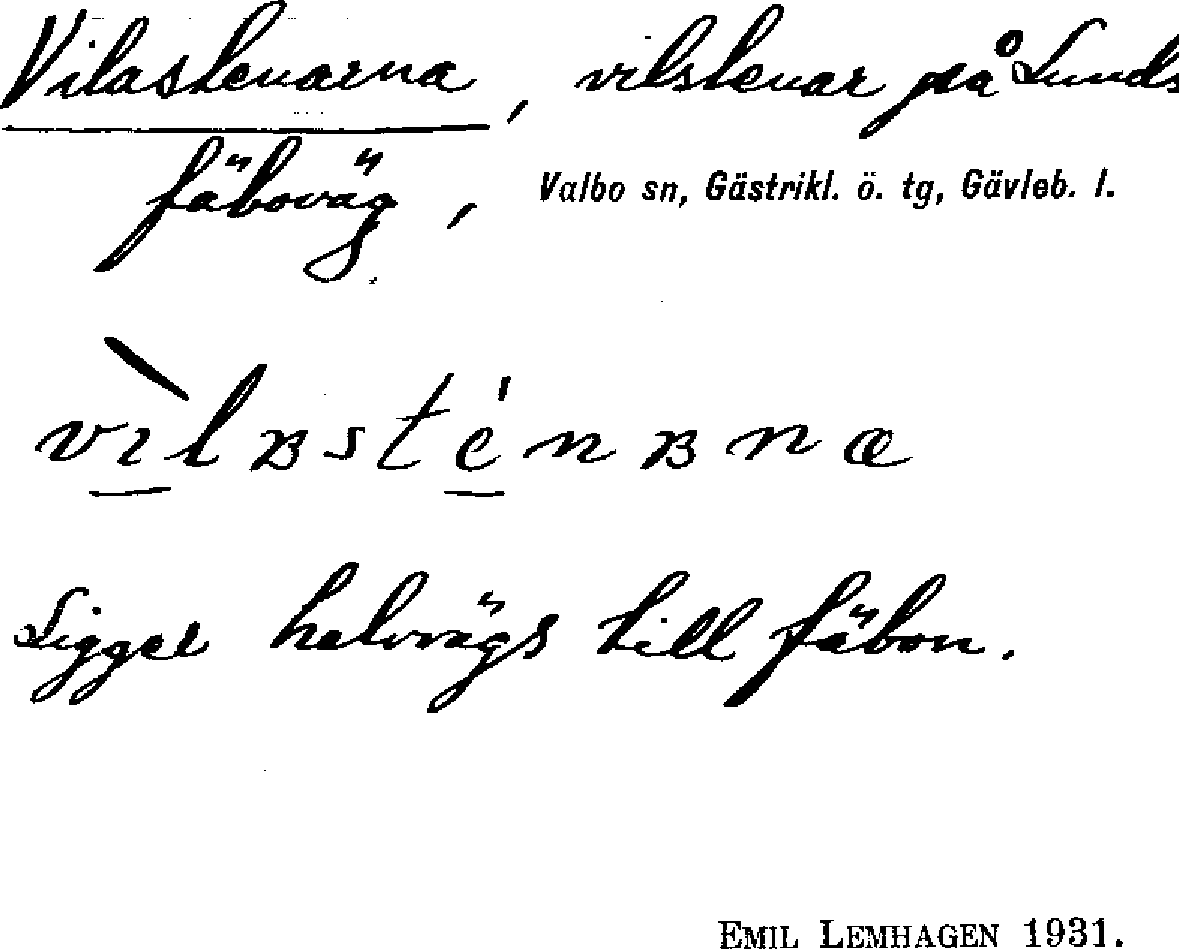 Vilastenarna, vilstenar på Lunds
fäboväg, Valbo sn, Gästrikl. ö. tg, Gävleb. l.
vìlʙsténʙnæ
Ligger halvvägs till fäbon.
EMIL LEMHAGEN 1931.